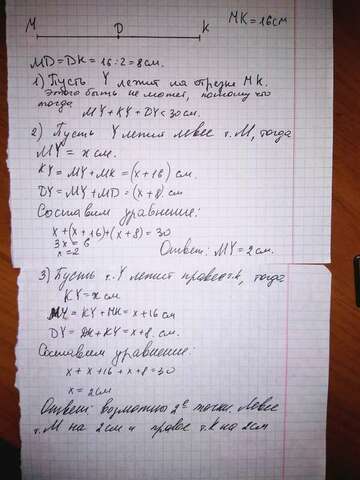 M D K MK = 16см
MD = DK = 16 : 2 = 8 см.
1) Пусть Y лежит на отрезке MK.
Этого быть не может, потому что
тогда
MY + KY + DY < 30 см.
2) Пусть Y лежит левее т. M, тогда
MY = x см.
KY = MY + MK = (x + 16) см.
DY = MY + MD = (x + 8) см
Составим уравнение:
x + (x + 16) + (x + 8) = 30
3x = 6
x = 2
Ответ: MY = 2 см.
3) Пусть т. Y лежит правее k, тогда
KY = x см
MY = KY + MK = x + 16 см
DY = DK + KY = x + 8 см.
Составим уравнение:
x + x + 16 + x + 8 = 30
x = 2 см
Ответ: возможно 2е точки. Левее
т. M на 2 см и правее т. k на 2 см